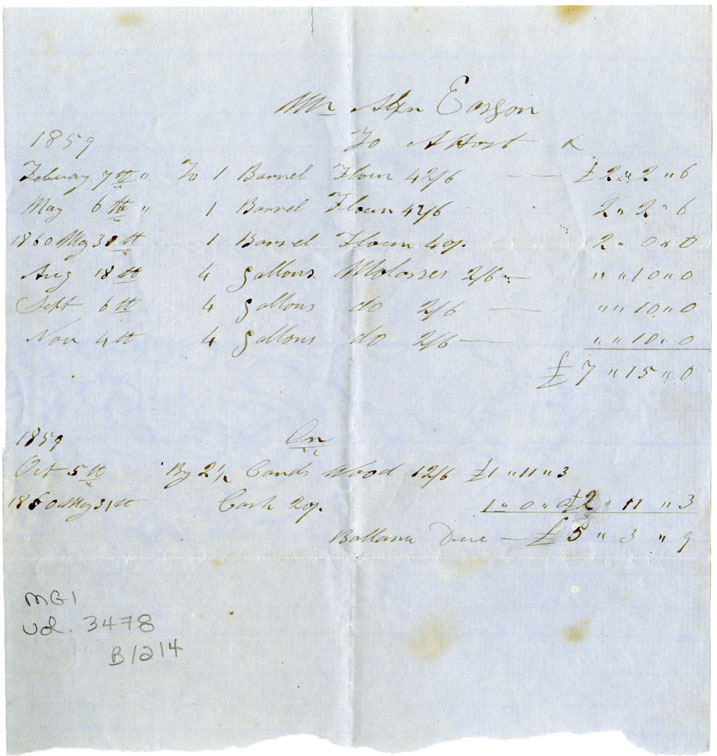 Mr Alxn Eargon
1859 To A Host
Feberary 7th " To 1 Barrel Flour 42/6 — £2 " 2 " 6
May 6th " 1 Barrel Flour 42/6 2 " 2 " 6
1860 May 31st 1 Barrel Flour 40/. 2 " 0 " 0
Aug 18th 4 gallons Molasses 2/6 — " " 10 " 0
Sept 6th 4 gallons do 2/6 — " " 10 " 0
Nov 4th 4 gallons do 2/6 — " " 10 " 0
£7 " 15 " 0
1859 Cr
Oct 5th By 2½ Cords Wood 12/6 £1 " 11 " 3
1860 May 31st Cash 20/. 1 " 0 " 0 £2 " 11 " 3
Ballance Due — £5 " 3 " 9
MG1
Vol. 3478
B1214